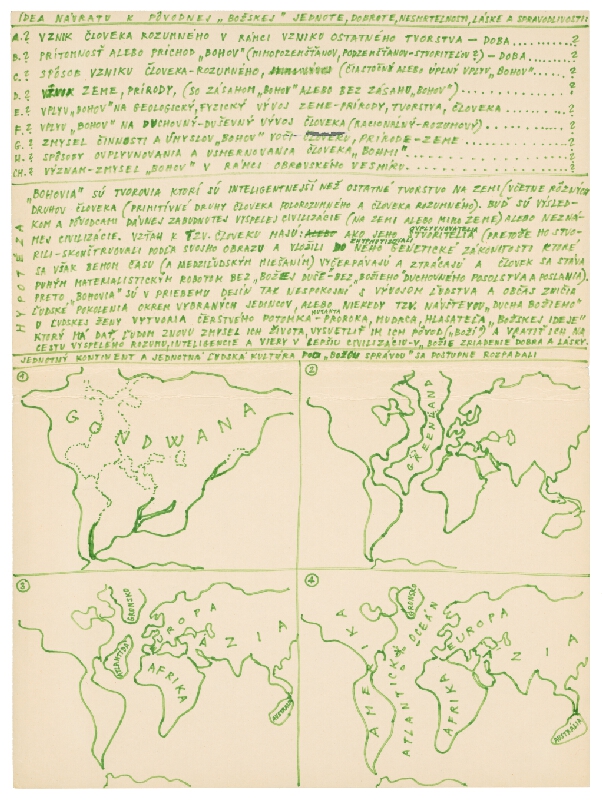 IDEA NÁVRATU K PÔVODNEJ „BOŽSKEJ" JEDNOTE, DOBROTE, NESMRTEĽNOSTI, LÁSKE A SPRAVODLIVOSTI
A.? VZNIK ČLOVEKA ROZUMNÉHO V RÁMCI VZNIKU OSTATNÉHO TVORSTVA – DOBA ..........?
B.? PRÍTOMNOSŤ ALEBO PRÍCHOD „BOHOV" (MIMOPOZEMŠŤANOV, PODZEMŠŤANOV-STVORITEĽOV?) – DOBA.......?
C.? SPÔSOB VZNIKU ČLOVEKA-ROZUMNÉHO, (ČIASTOČNÝ ALEBO ÚPLNÝ VPLYV „BOHOV"............?
D.? VZNIK ZEME, PRÍRODY, (SO ZÁSAHOM „BOHOV" ALEBO BEZ ZÁSAHU „BOHOV")..........?
E.? VPLYV „BOHOV" NA GEOLOGICKÝ, FYZICKÝ VÝVOJ ZEME-PRÍRODY, TVORSTVA, ČLOVEKA.........?
F.? VPLYV „BOHOV" NA DUCHOVNÝ-DUŠEVNÝ VÝVOJ ČLOVEKA (RACIONÁLNY-ROZUMOVÝ)..........?
G.? ZMYSEL ČINNOSTI A ÚMYSLOV „BOHOV" VOČI ČLOVEKU, PRÍRODE-ZEME ..........?
H.? SPÔSOBY OVPLYVŇOVANIA A USMERŇOVANIA ČLOVEKA „BOHMI" ..........?
CH.? VÝZNAM-ZMYSEL „BOHOV" V RÁMCI OBROVSKÉHO VESMÍRU. ..........?
HYPOTÉZA
„BOHOVIA" SÚ TVOROVIA KTORÍ SÚ INTELIGENTNEJŠÍ NEŽ OSTATNÉ TVORSTVO NA ZEMI (VČETNE RÔZNYCH
DRUHOV ČLOVEKA (PRIMITÍVNE DRUHY ČLOVEKA POLOROZUMNÉHO A ČLOVEKA ROZUMNÉHO). BUĎ SÚ VÝSLED-
KOM A PÔVODCAMI DÁVNEJ ZABUDNUTEJ VYSPELEJ CIVILIZÁCIE (NA ZEMI ALEBO MIMO ZEME) ALEBO NEZNÁ-
MEJ CIVILIZÁCIE. VZŤAH K TZV. ČLOVEKU MAJÚ AKO JEHO STVORITELIA (PRETOŽE HO STVO-
OVPLYVŇOVATELIA
RILI-SKONŠTRUOVALI PODĽA SVOJHO OBRAZU A VLOŽILI DO NEHO GENETICKÉ ZÁKONITOSTI KTORÉ
SA VŠAK BEHOM ČASU (A MEDZIĽUDSKÝM MIEŠANÍM) VYČERPÁVAJÚ A ZTRÁCAJÚ A ČLOVEK SA STÁVA
PUHÝM MATERIALISTICKÝM ROBOTOM BEZ „BOŽEJ DUŠE"-BEZ „BOŽIEHO" DUCHOVNÉHO POSOLSTVA A POSLANIA).
PRETO „BOHOVIA" SÚ V PRIEBEHU DEJÍN TAK NESPOKOJNÍ S VÝVOJOM ĽUDSTVA A OBČAS ZNIČIA
ĽUDSKÉ POKOLENIA OKREM VYBRANÝCH JEDINCOV, ALEBO NIEKEDY TZV. NÁVŠTEVOU „DUCHA BOŽIEHO"
U ĽUDSKEJ ŽENY VYTVORIA ČERSTVÉHO POTOMKA-PROROKA, MUDRCA, HLÁSATEĽA „BOŽSKEJ IDEJE"
MUTANTA
KTORÝ MÁ DAŤ ĽUĎOM ZNOVU ZMYSEL ICH ŽIVOTA, VYSVETLIŤ IM ICH PÔVOD („BOŽÍ"?) A VRÁTIŤ ICH NA
CESTU VYSPELÉHO ROZUMU, INTELIGENCIE A VIERY V LEPŠIU CIVILIZÁCIU-V „BOŽIE ZRIADENIE DOBRA A LÁSKY.
JEDNOTNÝ KONTINENT A JEDNOTNÁ ĽUDSKÁ KULTÚRA POD „BOŽOU SPRÁVOU" SA POSTUPNE ROZPADALI
1
GONDWANA
2
GREENLAND
3
GRÓNSKO
ATLANTÍDA
EUROPA
ÁZIA
AFRIKA
AUSTRÁLIA
4
GRÓNSKO
AMERIKA
ATLANTICKÝ OCEÁN
EUROPA
ÁZIA
AFRIKA
AUSTRÁLIA